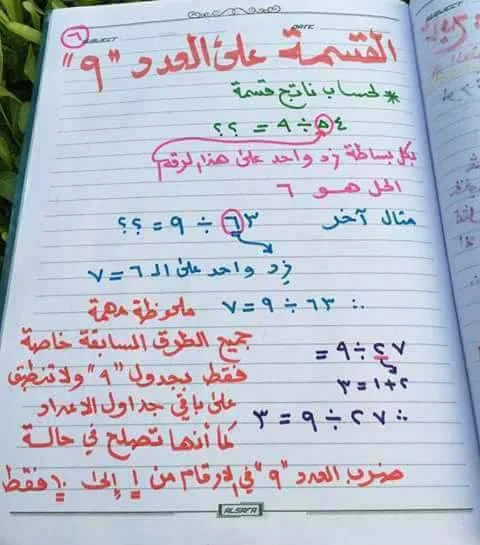 ٦
SUBJECT
DATE
القسمة على العدد "٩"
* لحساب ناتج قسمة
٥٤ ÷ ٩ = ؟؟
بكل بساطة زد واحد على هذا الرقم
الحل هو ٦
مثال آخر ٦٣ ÷ ٩ = ؟؟
زد واحد على الـ ٦ = ٧
∴ ٦٣ ÷ ٩ = ٧
ملحوظة مهمة
جميع الطرق السابقة خاصة
فقط بجدول "٩" ولا تنطبق
على باقي جداول الاعداد
كما أنها تصلح في حالة
ضرب العدد "٩" في الارقام من ١ إلى ١٠ فقط
٢٧ ÷ ٩ =
٢ + ١ = ٣
∴ ٢٧ ÷ ٩ = ٣
ALSAFA